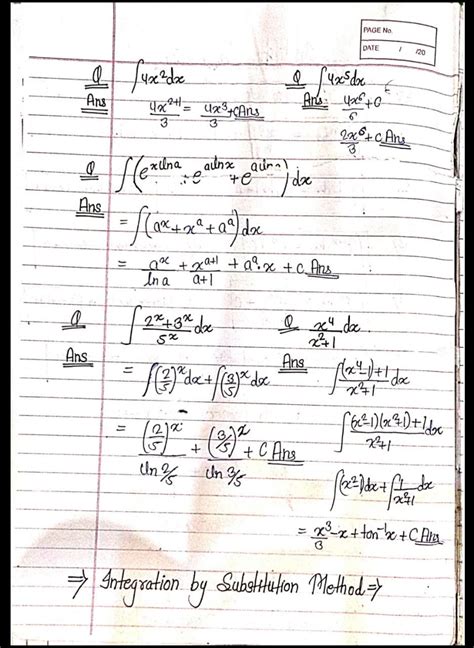 PAGE No.
DATE / /20
Q ∫4x²dx
Ans 4x²⁺¹/3 = 4x³/3 + C Ans
Q ∫4x⁵dx
Ans 4x⁶/6 + C
2x⁶/3 + C Ans
Q ∫(e^(xlna) + e^(alnx) + e^(alna))dx
Ans = ∫(aˣ + xᵃ + aᵃ)dx
= aˣ/lna + x^(a+1)/(a+1) + aᵃ·x + C Ans
Q ∫(2ˣ+3ˣ)/5ˣ dx
Ans = ∫(2/5)ˣdx + ∫(3/5)ˣdx
= (2/5)ˣ/ln 2/5 + (3/5)ˣ/ln 3/5 + C Ans
Q x⁴/(x²+1) dx
Ans ∫((x⁴-1)+1)/(x²+1) dx
∫((x²-1)(x²+1)+1)/(x²+1) dx
∫(x²-1)dx + ∫1/(x²+1) dx
= x³/3 - x + tan⁻¹x + C Ans
⇒ Integration by Substitution Method ⇒